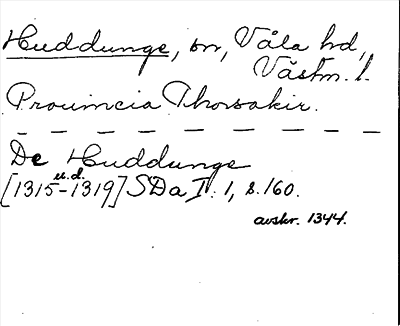 Huddunge, sn, Våla hd,
Västm. l.
Prouincia Thorsakir.
De Huddunge
u.d.
[1315-1319] SDa I: 1, s. 160.
avskr. 1344.